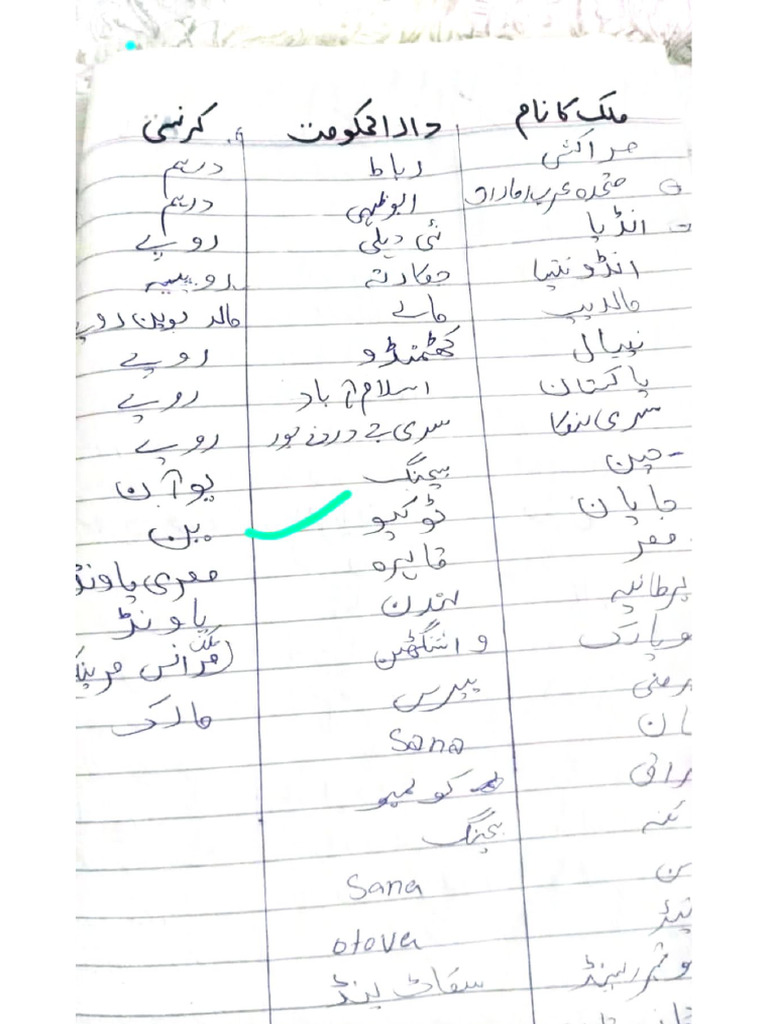 ملک کا نام دارالحکومت کرنسی
مراکش رباط درہم
متحدہ عرب امارات ابوظہبی درہم
انڈیا نئی دہلی روپے
انڈونیشیا جکارتہ روپیہ
مالدیپ مالے مالدیوین روپے
نیپال کھٹمنڈو روپے
پاکستان اسلام آباد روپے
سری لنکا سری جے وردنے پور روپے
چین بیجنگ یوآن
جاپان ٹوکیو ین
مصر قاہرہ مصری پاونڈ
برطانیہ لندن پاونڈ
واشنگٹن فرانس
پیرس مارک
Sana
کولمبو
بیجنگ
Sana
otova